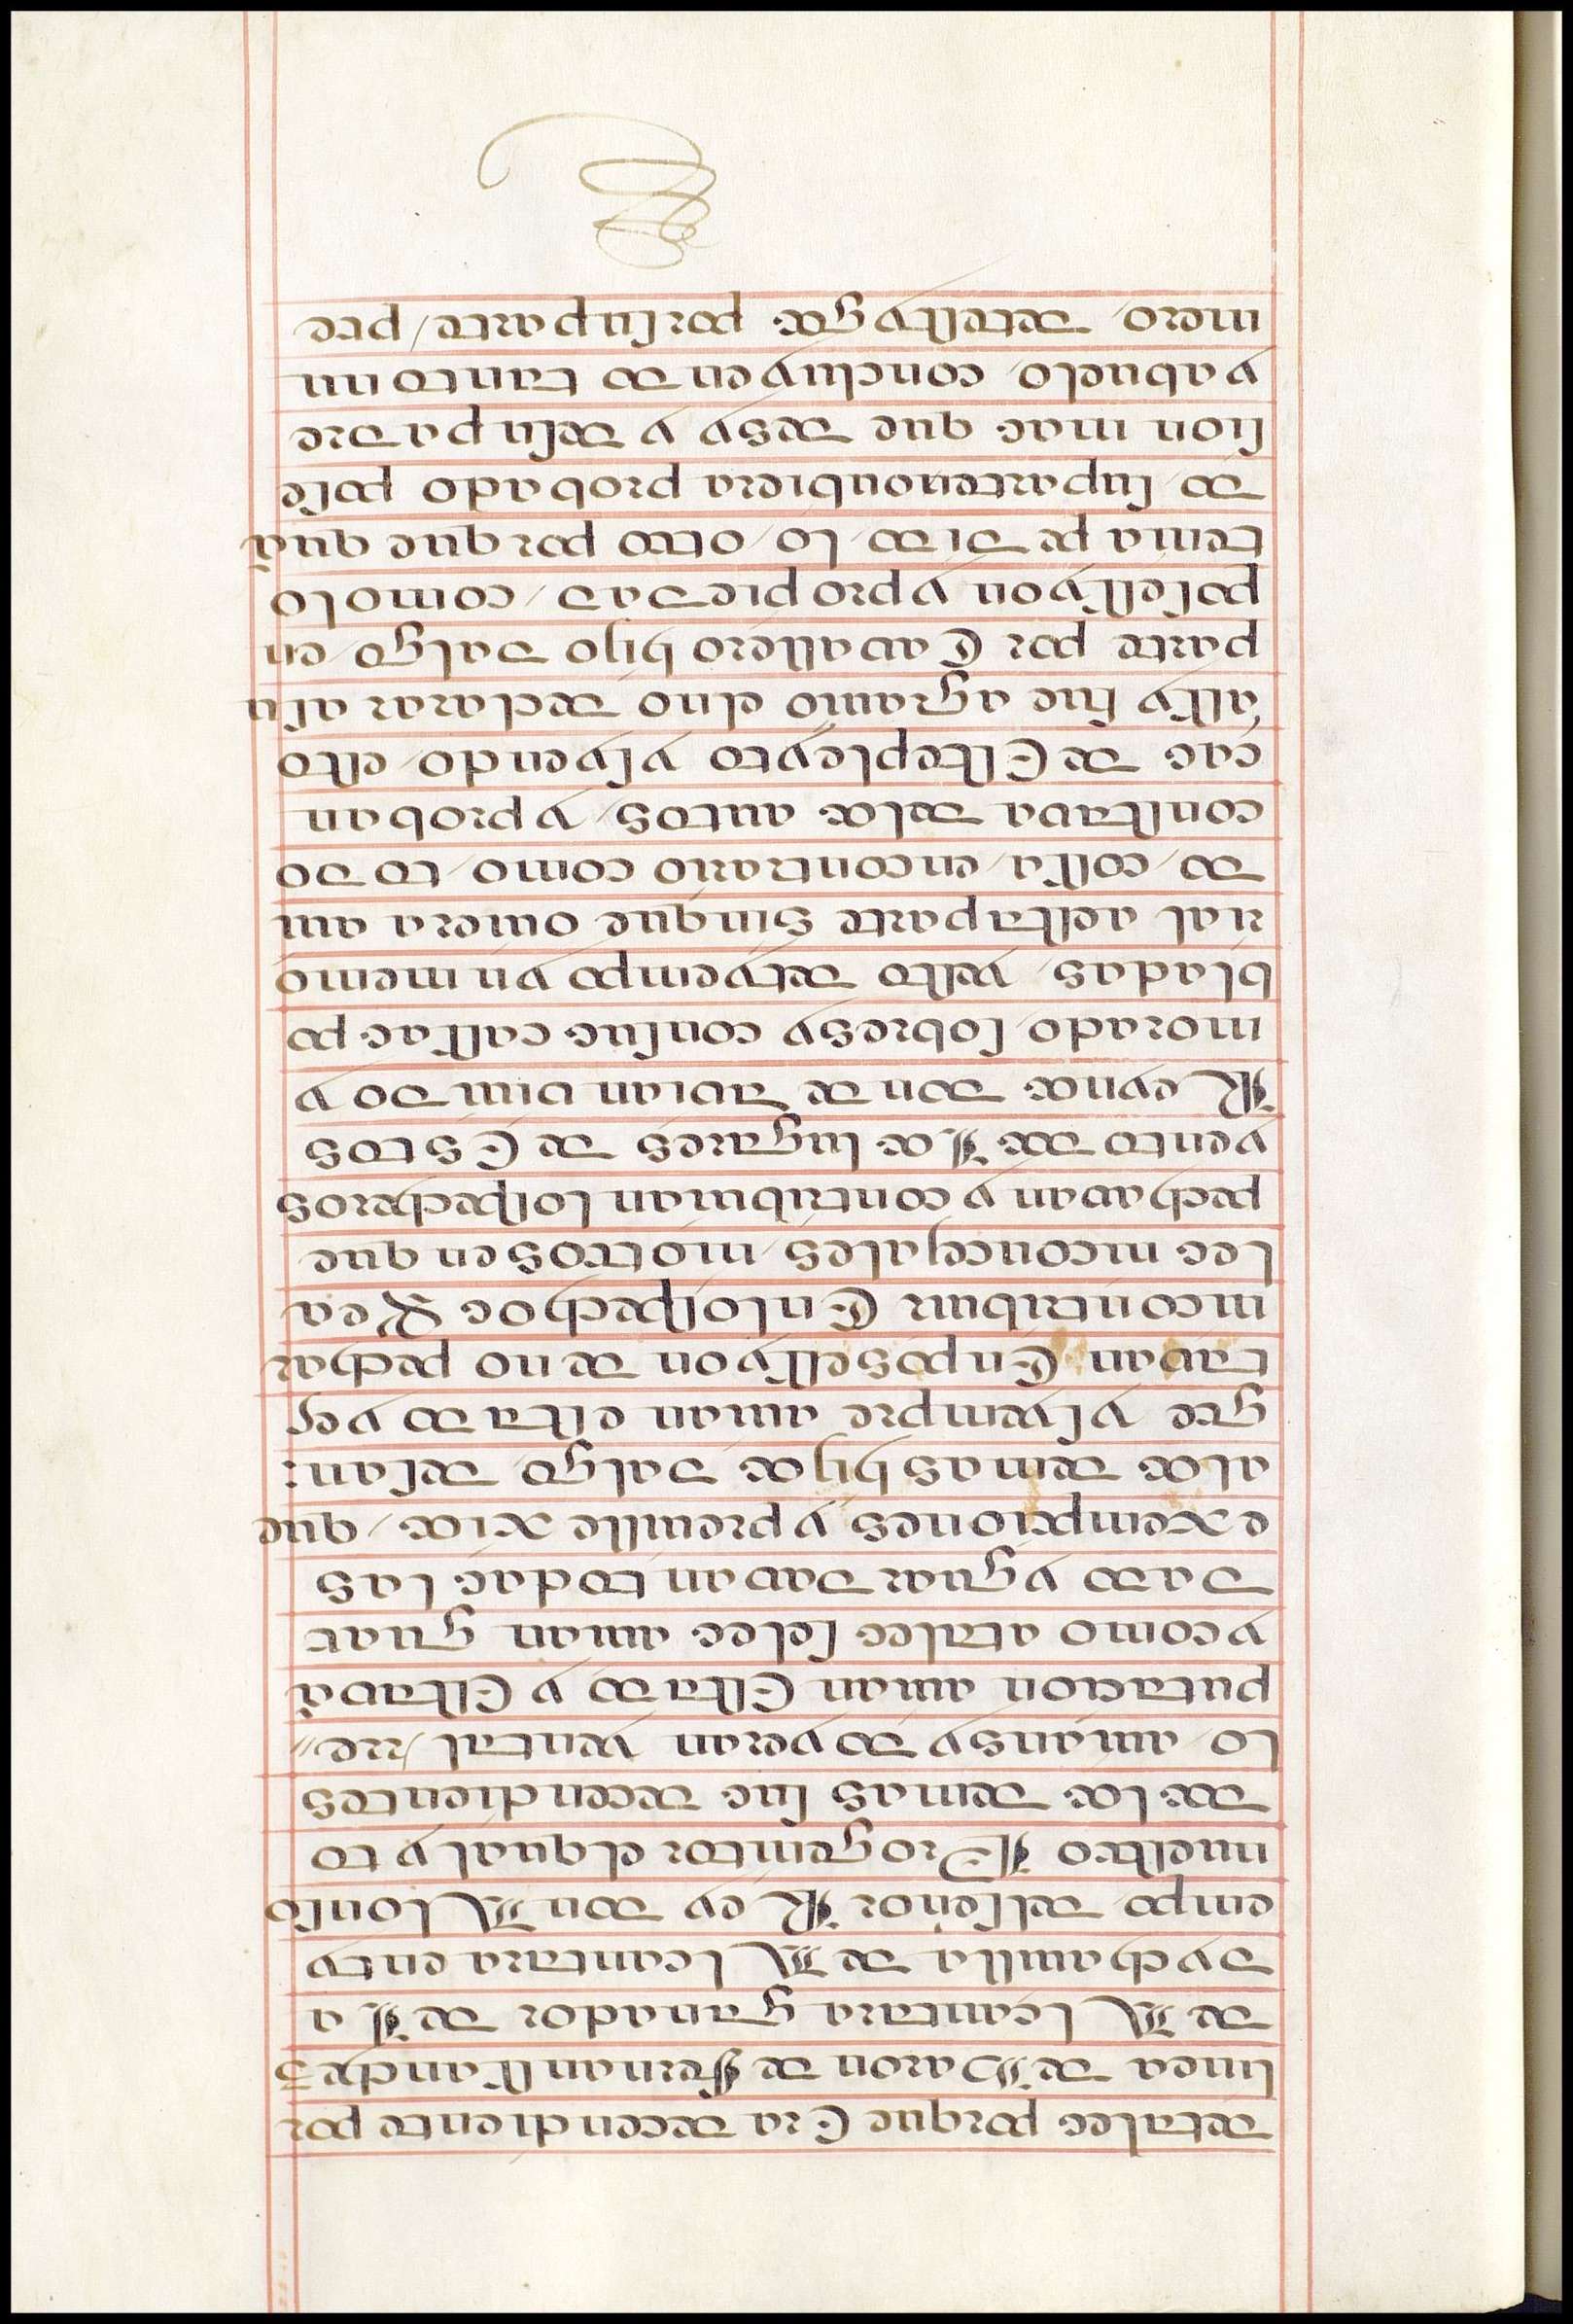 detales porque Era decendiente por
linea de Varon de Hernan Sanchez
de Alcantara ganador de la
dicha villa de Alcantara en ti
empo del señor Rey don Alonso
nuestro Progenitor el qual y to
dos los demas sus decendientes
lo avian sydo y eran y en tal, re//
putacion avian Estado y Estava
y como atales seles avian guar
dado y guardavan todas las
exempciones y preemi xias, que
alos demas hijos dalgo desan:
gre y siempre avian estado y es
tavan En possession de no pechar
ni contribuir En los pechos Rea
les ni conçejales, ni otros en que
pechavan y contribuian los pecheros
y en todos los lugares de Estos
Reynos donde avian vivido y
morado, sobre sy con sus cassas po
bladas, y esto de tiempo ynmemo
rial aesta parte sin que oviera avi
do, cossa, en contrario como, todo
constava delos autos, y provan
ças de Este pleyto y siendo, esto
assi fue agravio el no declarar asu
parte por Cavallero hijo dalgo, en
possession y propiedad, como lo
tenia pedido, lo, otro por que qua
do, su parte no ubiera provado pose
sion mas que desy y de su padre
y abuelo, concluyendo tanto nu
mero, detestigos por su parte, pre